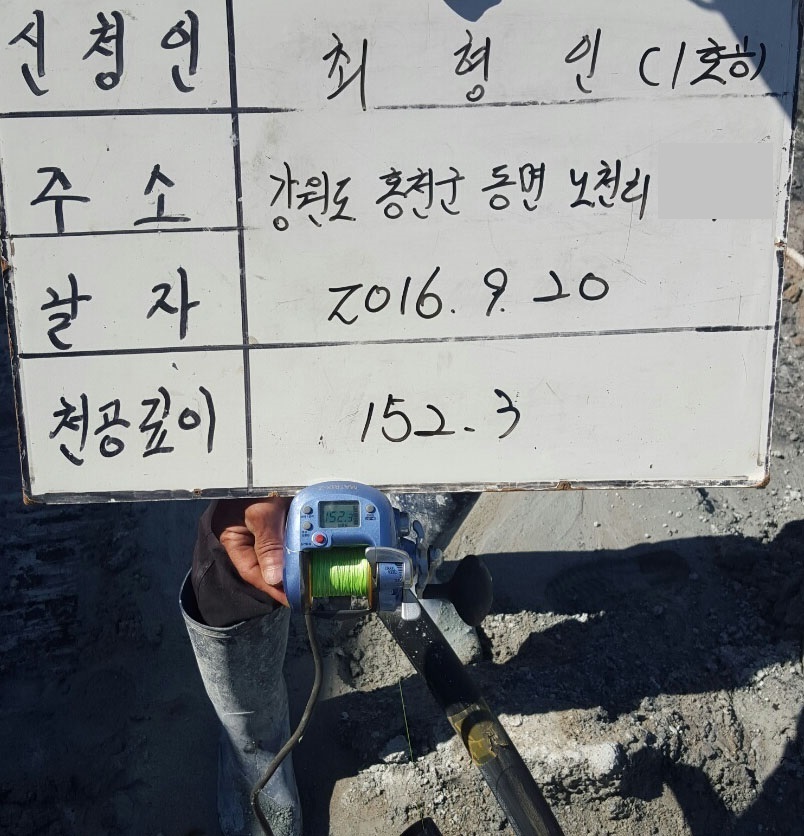 신청인 최형인 (1호공)
주소 강원도 홍천군 동면 노천리
날자 2016. 9. 20
천공깊이 152.3
152.3